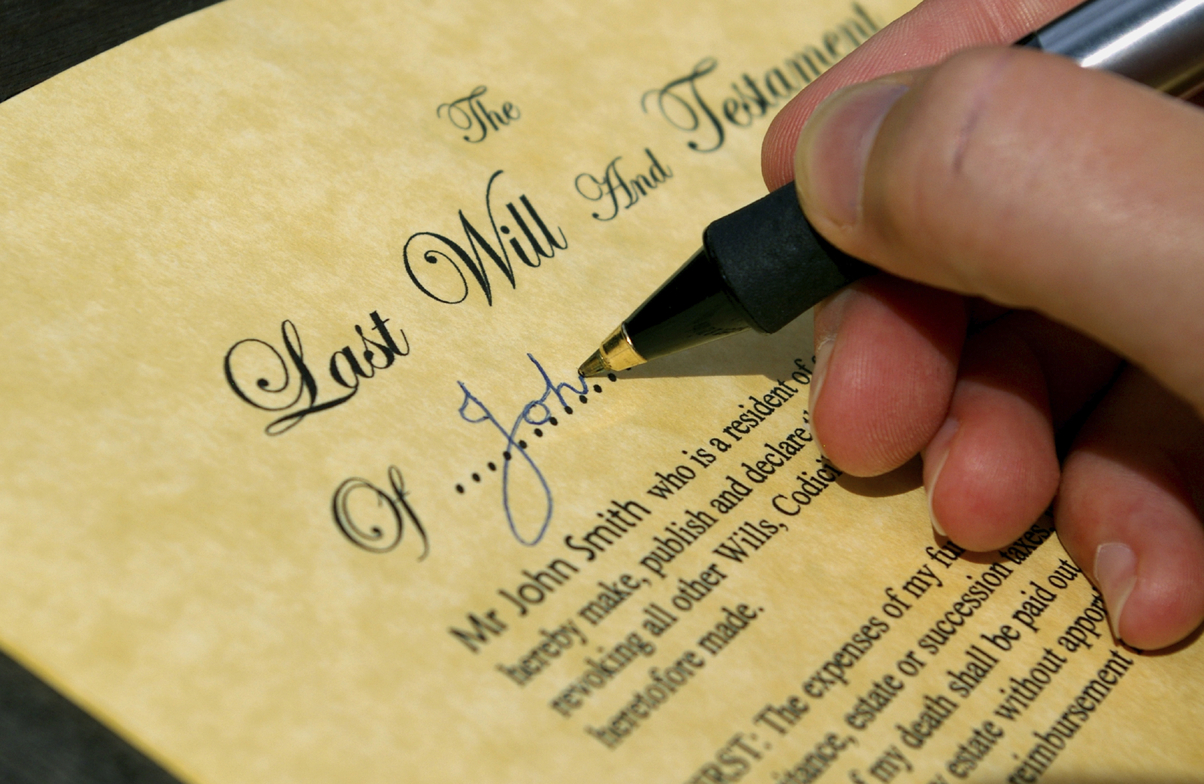 The
Last Will And Testament
Of ........... John
Mr John Smith who is a resident of
hereby make, publish and declare
revoking all other Wills,
heretofore made.
The expenses of my
estate or succession taxes,
my death shall be paid out
estate without
reimbursement